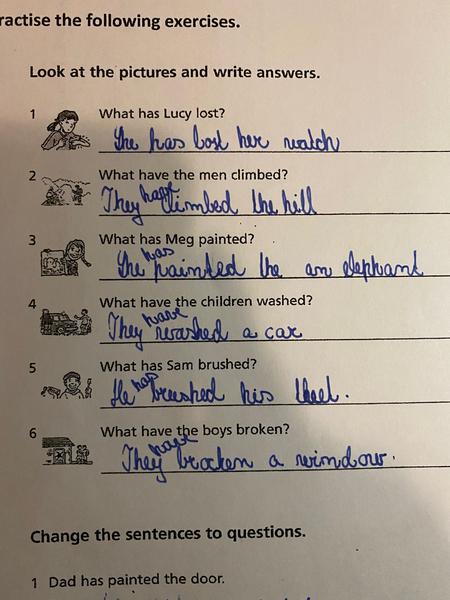 ractise the following exercises.
Look at the pictures and write answers.
1 What has Lucy lost?
She has lost her watch
2 What have the men climbed?
They have climbed the hill
3 What has Meg painted?
She has painted the an elephant
4 What have the children washed?
They have washed a car
5 What has Sam brushed?
He has brushed his theet.
6 What have the boys broken?
They have brocken a window.
Change the sentences to questions.
1 Dad has painted the door.